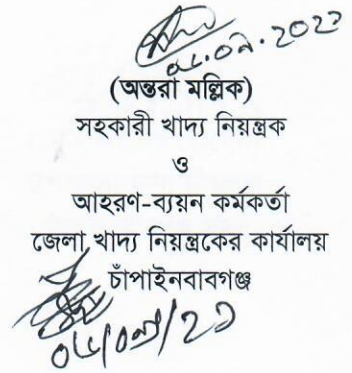 ০৮.০৯.২০২২
(অন্তরা মল্লিক)
সহকারী খাদ্য নিয়ন্ত্রক
ও
আহরণ-ব্যয়ন কর্মকর্তা
জেলা খাদ্য নিয়ন্ত্রকের কার্যালয়
চাঁপাইনবাবগঞ্জ